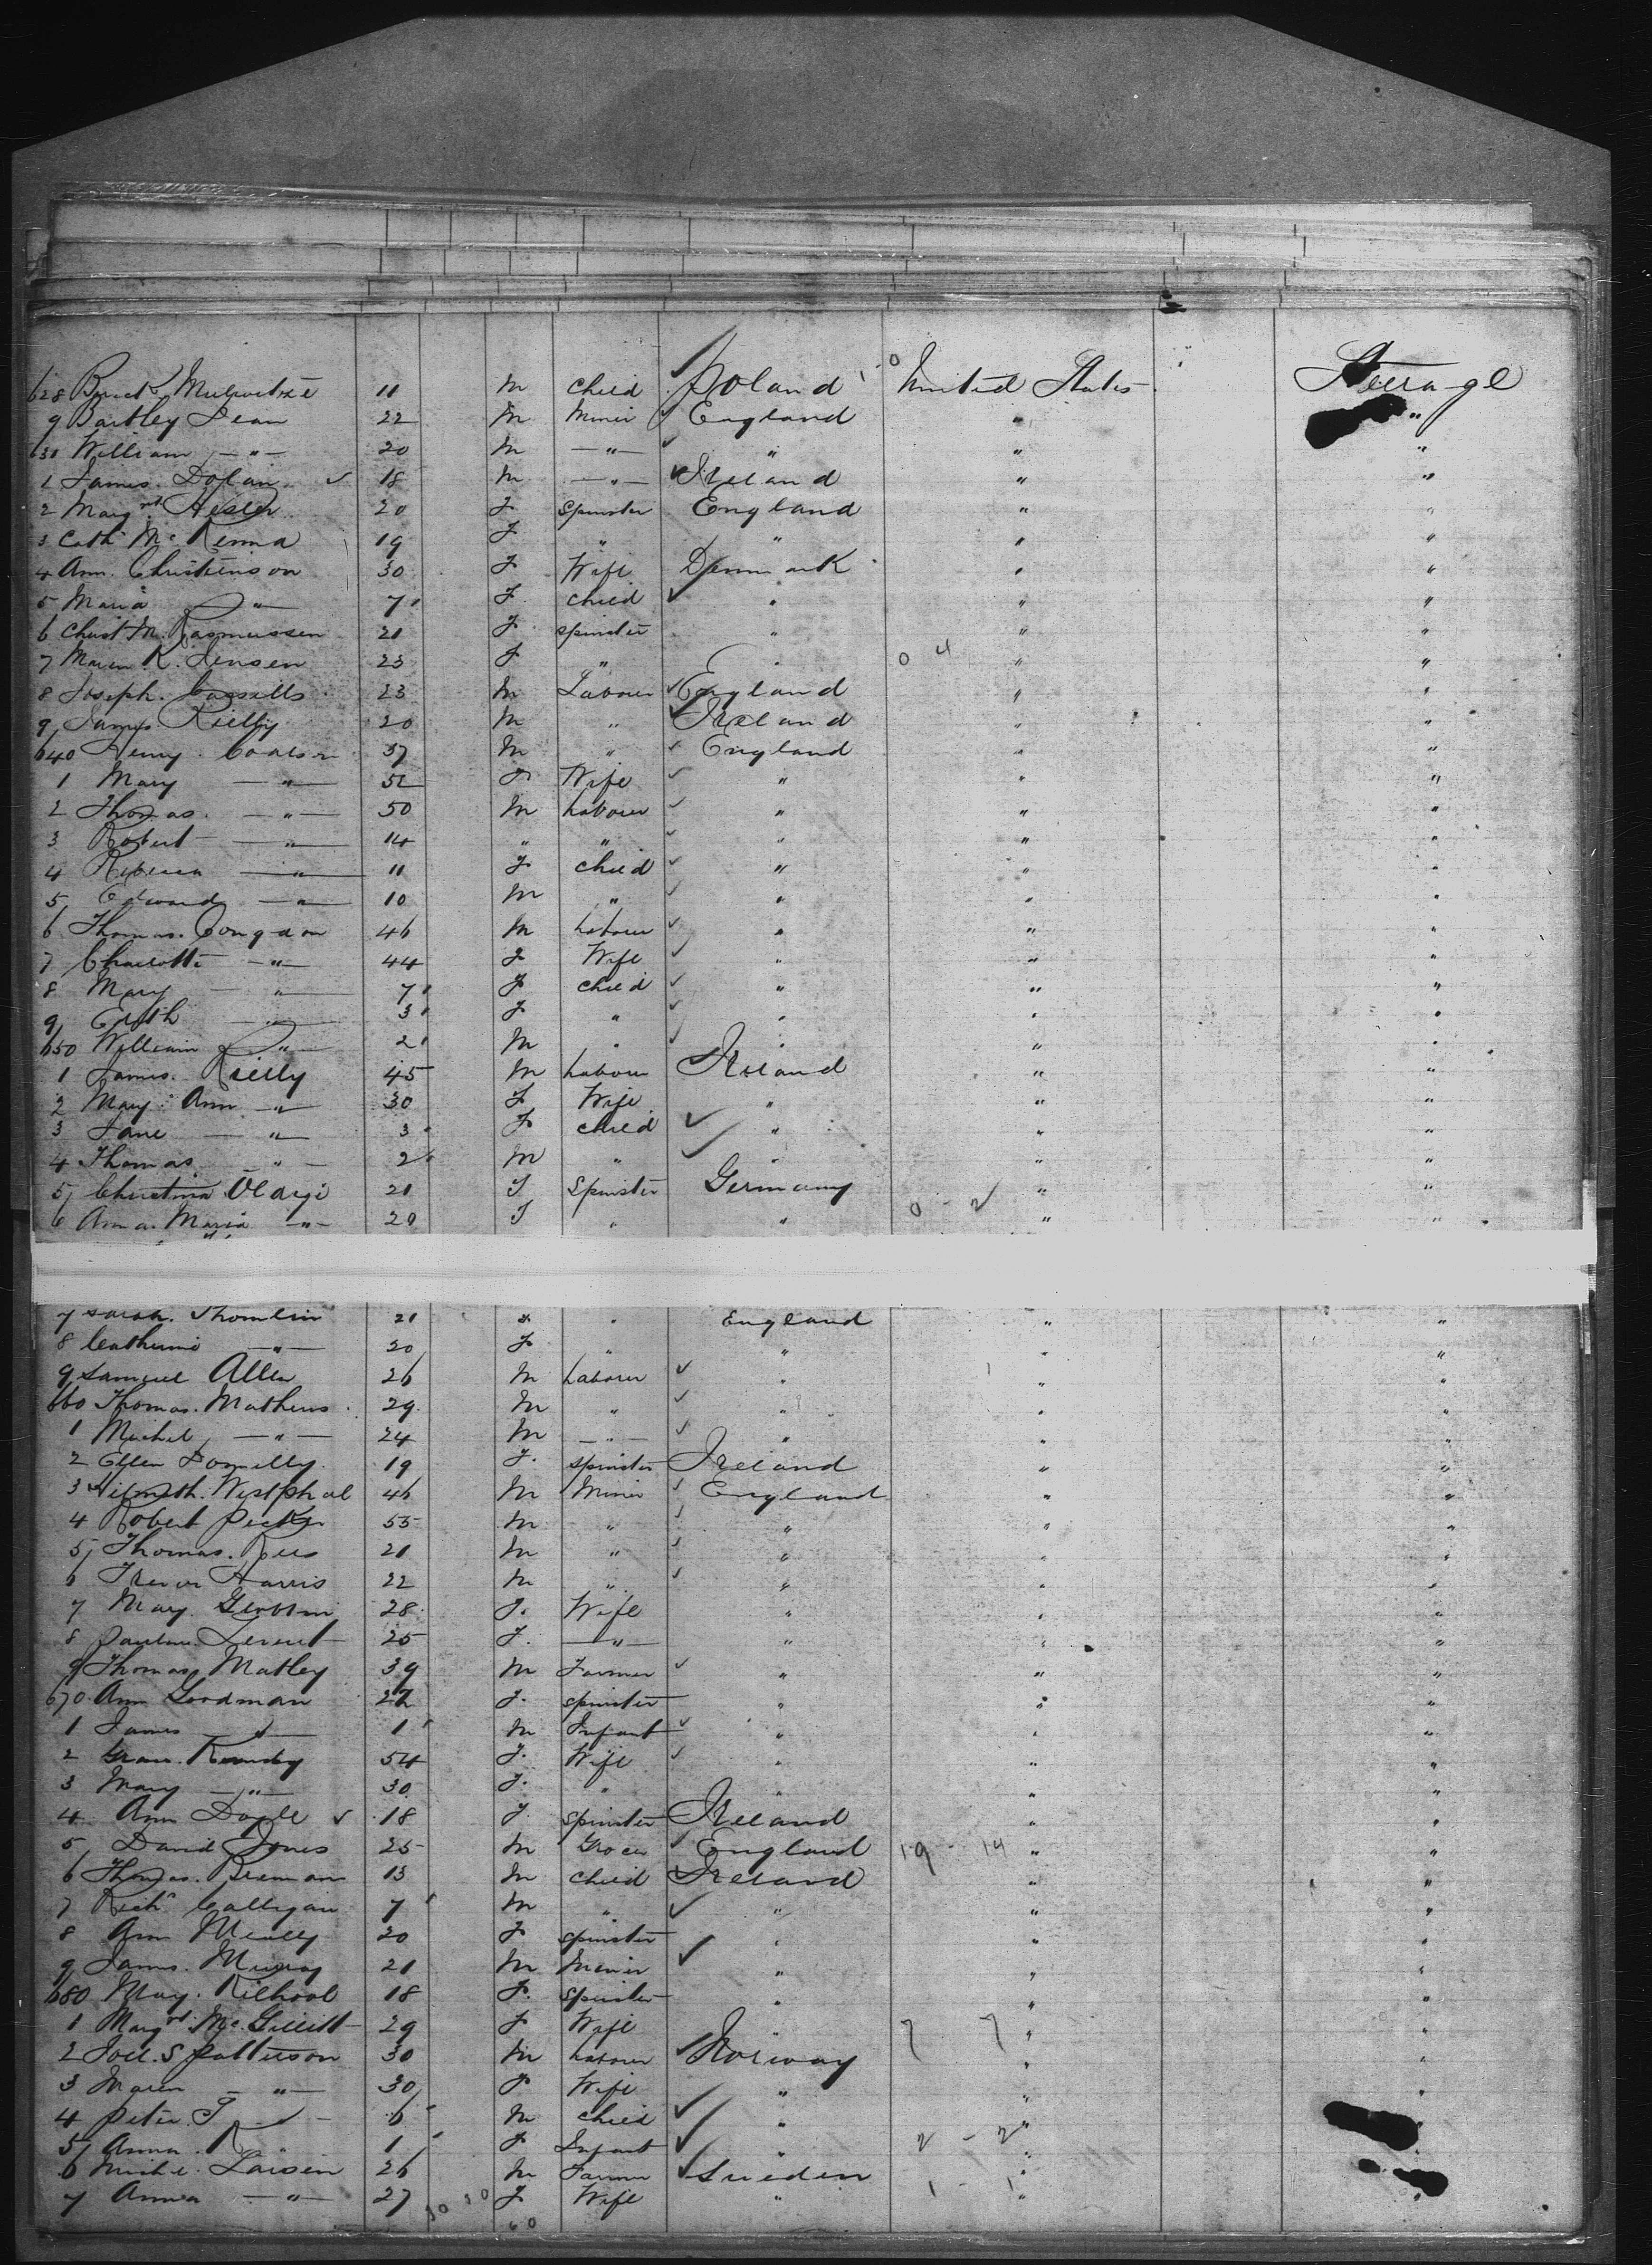 628 11 M Child Poland 1-0 United States Steerage
9 Bartley Dean 22 M Miner England " "
630 William —"— 20 M —"— " " "
1 James Dolan 18 M —"— Ireland " "
2 Margrt Hesler 20 F Spinster England " "
3 Cath Mc Kenna 19 F " " " "
4 Ann Christenson 30 F Wife Denmark " "
5 Maria —"— 7 F Child " " "
6 Christ M. Rasmussen 21 F spinster " " "
7 Maren K. Jensen 23 F " " 0 4 " "
8 Joseph Cassells 23 M Labourer England " "
9 James Rielly 20 M " Ireland " "
640 Henry Coatson 37 M " England " "
1 Mary —"— 52 F Wife " " "
2 Thomas —"— 50 M Labourer " " "
3 Robert —"— 14 " " " " "
4 Rebecca —"— 11 F Child " " "
5 Edward —"— 10 M " " " "
6 Thomas Congdon 46 M Labourer " " "
7 Charlotte —"— 44 F Wife " " "
8 Mary —"— 7 F Child " " "
9 Edith —"— 3 F " " " "
650 William —"— 2 M " " " "
1 James Rielly 45 M Labourer Ireland " "
2 Mary Ann —"— 30 F Wife " " "
3 Jane —"— 3 F Child " " "
4 Thomas —"— 2 M " " " "
5 Christina 21 F Spinster Germany " "
6 Anna Maria —"— 20 F " " 0 - 2 " "
7 Sarah Thomlin 21 " " England " "
8 Catherine —"— 20 F " " " "
9 Samuel Allen 26 M Labourer " " "
660 Thomas Mathews 29 M " " " "
1 Michel —"— 24 M —"— " " "
2 Ellen Donnelly 19 F spinster Ireland " "
3 Westphal 46 M Miner England " "
4 Robert 55 M " " " "
5 Thomas Rees 21 M " " " "
6 Trevor Harris 22 M " " " "
7 Mary 28 F Wife " " "
8 25 F —"— " " "
9 Thomas Matley 39 M Farmer " " "
670 Ann Goodman 22 F spinster " " "
1 James —"— 1 M Infant " " "
2 54 F Wife " " "
3 Mary —"— 30 F " " " "
4 Ann Doyle 18 F spinster Ireland " "
5 David Jones 25 M Grocer England 19 - 14 " "
6 Thomas 13 M Child Ireland " "
7 Richd Calligan 7 M " " " "
8 Ann 20 F spinster " " "
9 James Murray 21 M Miner " " "
680 May 18 F spinster " " "
1 Margrt Mc 29 F Wife " 7 7 " "
2 S Patterson 30 M Labourer Norway " "
3 Maren —"— 30 F Wife " " "
4 Peter T —"— 6 M Child " " "
5 Anna K " 1 F Infant " 2 - 2 " "
6 Larsen 26 M Farmer Sweden " "
7 Anna —"— 27 F Wife " 1 - 1 " "
30 30
60